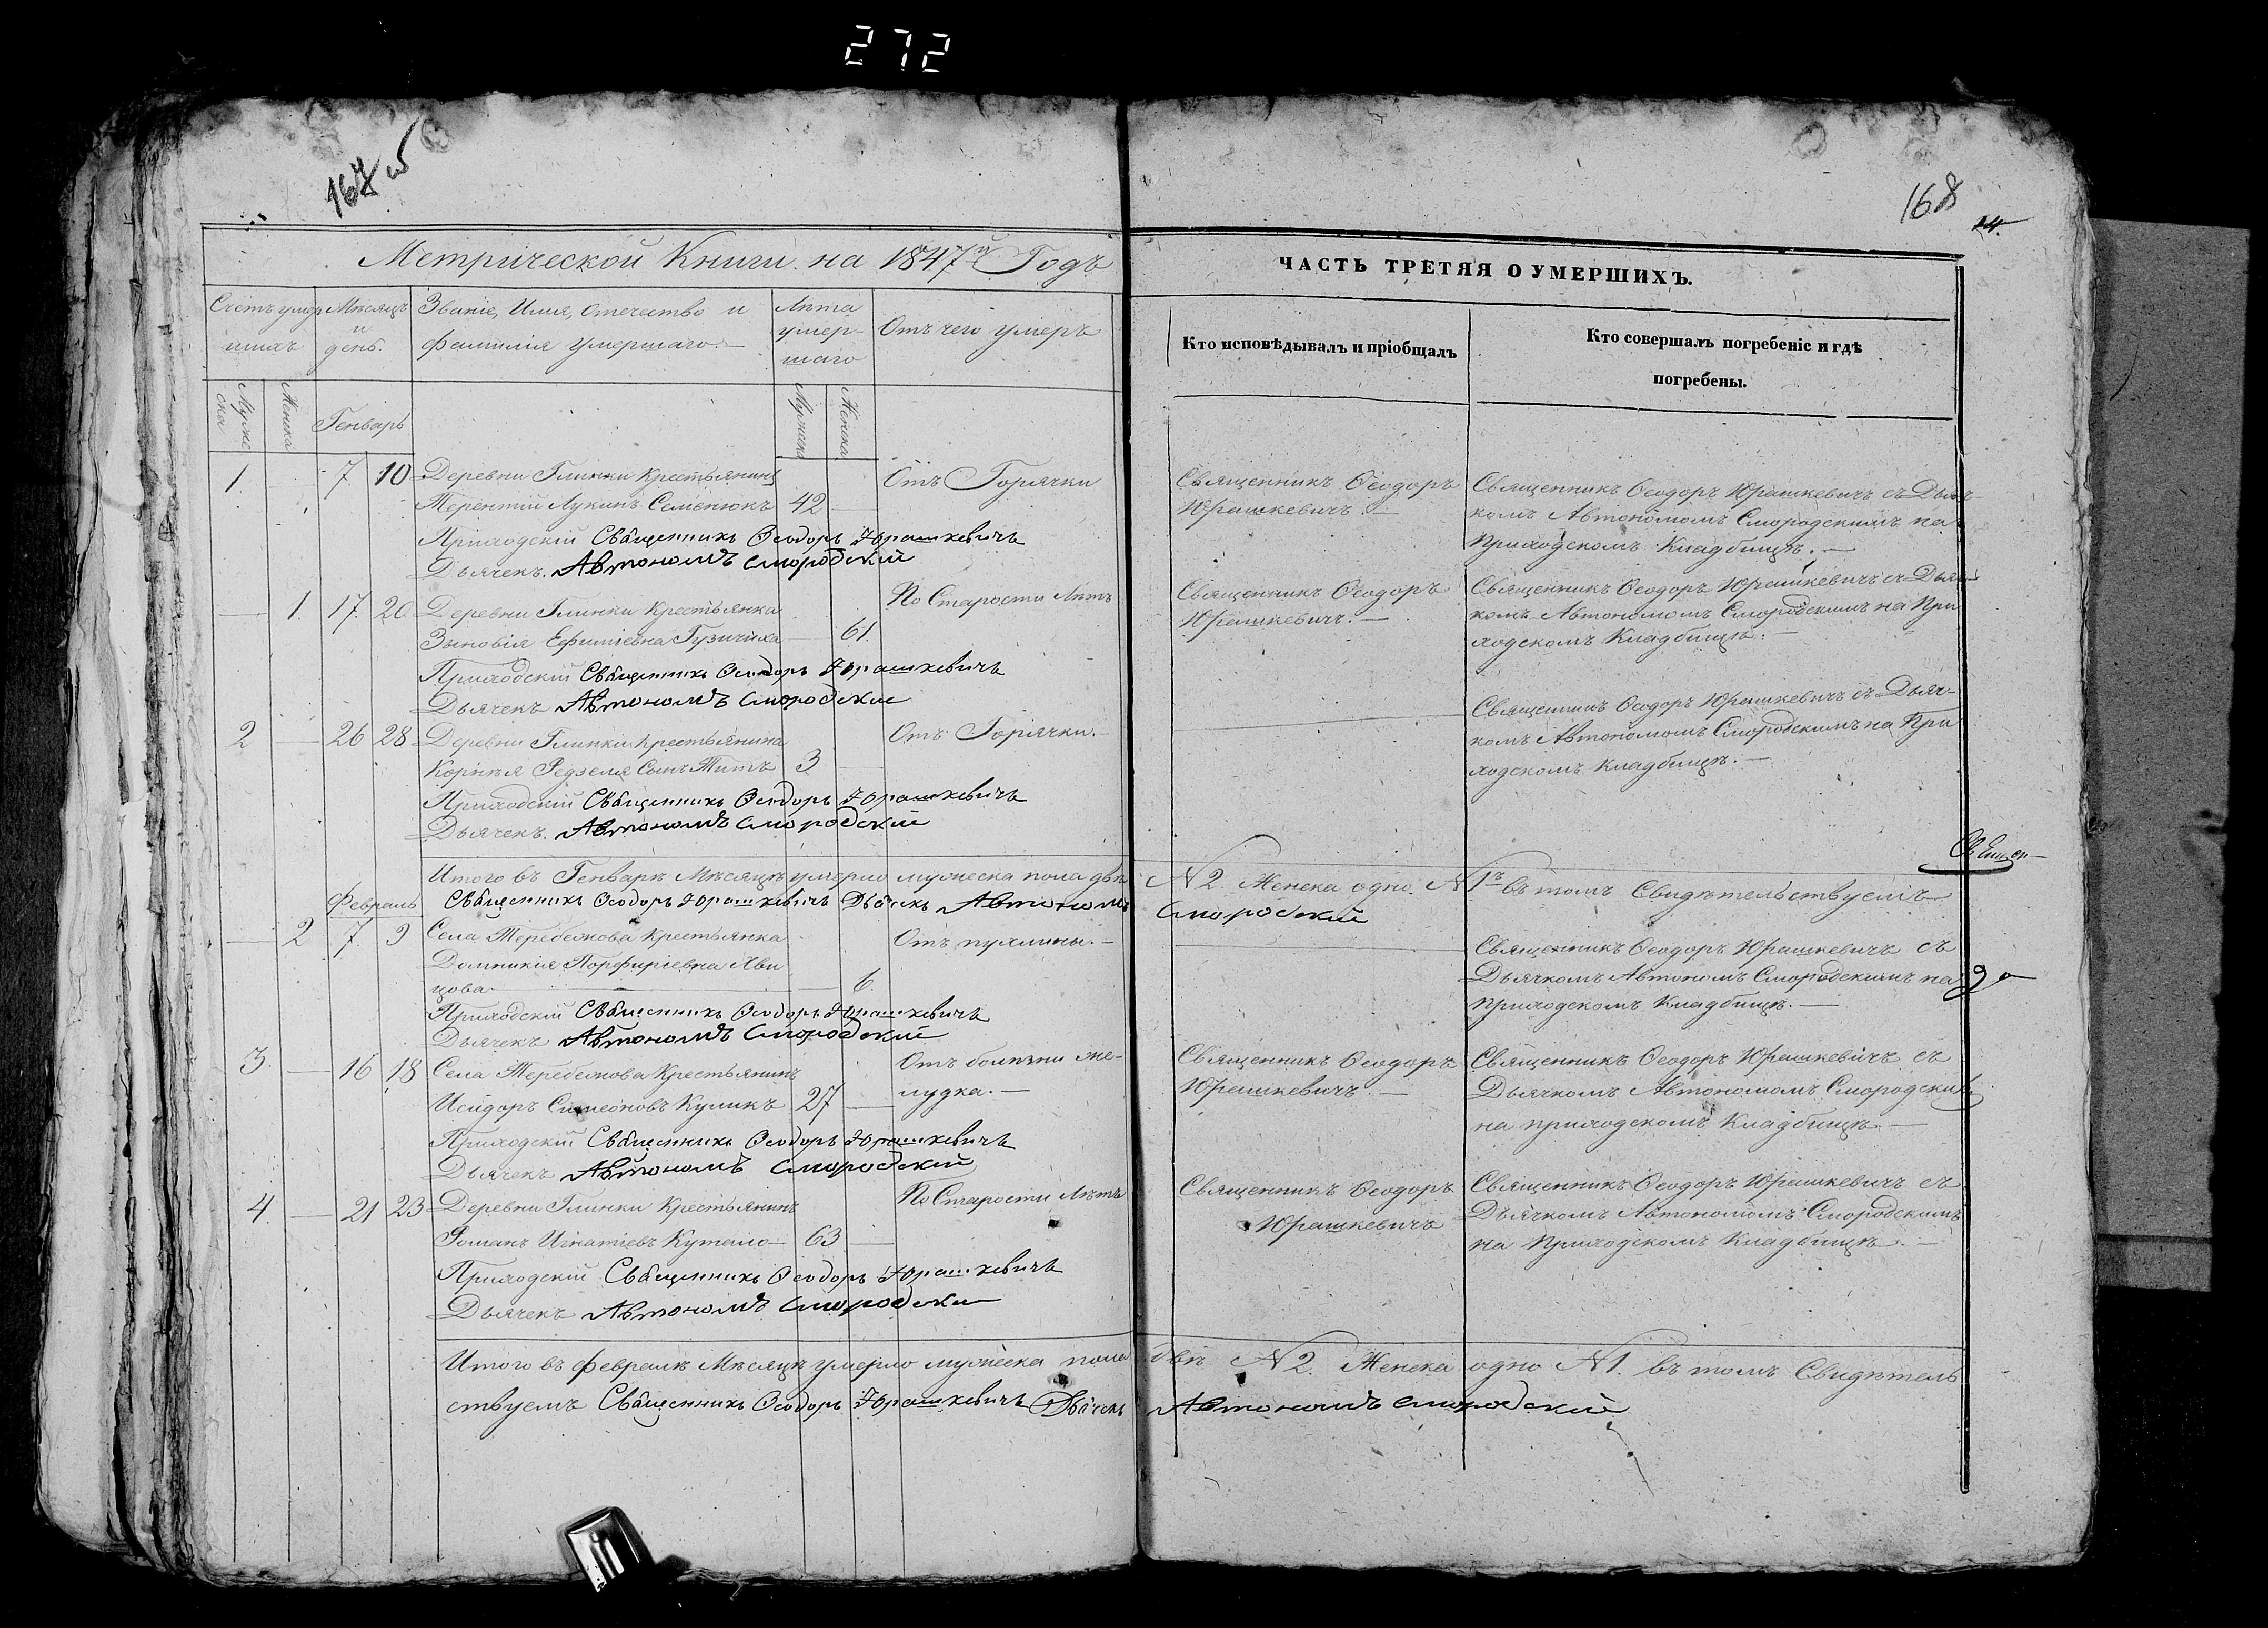 272
167 об
168
14.
Метрической Книги на 1847й Годъ
ЧАСТЬ ТРЕТЯЯ О УМЕРШИХЪ.
Счетъ умер
шихъ
Мѣсяцъ
и
день.
Званіе, Имя, Отечество и
фамилія умершаго.
Лѣта
умер-
шаго
Отъ чего умеръ
Кто исповѣдывалъ и пріобщалъ
Кто совершалъ погребеніе и гдѣ
погребены.
Муже
ска
Женска
Генварь
Мужеска
Женска
1. — 7 10 Деревни Глинки Крестьянинъ
Терентій Лукинъ Семенюкъ 42 —
Отъ Горячки
Священникъ Ѳеодоръ
Юрашкевичъ. —
Священникъ Ѳеодоръ Юрашкевичъ съ Дьяч-
комъ Автономомъ Смородскимъ на
Приходскомъ Кладбищѣ. —
Приходскій Священникъ Ѳеодоръ Юрашкевичъ
Дьячекъ. Автономъ Смородскій
— 1. 17. 20 Деревни Глинки Крестьянка
Зыновія Ефиміевна Гузичиха — 61.
По Старости Лѣтъ
Священникъ Ѳеодоръ
Юрашкевичъ. —
Священникъ Ѳеодоръ Юрашкевичъ съ Дьяч-
комъ Автономомъ Смородскимъ на При
ходскомъ Кладбищѣ. —
Приходскій Священникъ Ѳеодоръ Юрашкевичъ
Дьячекъ Автономъ Смородскій
2 — 26 28 Деревни Глинки Крестьянина
Корнѣя Редзеля Сынъ Титъ 3 —
Отъ Горячки. —
Священникъ Ѳеодоръ Юрашкевичъ съ Дьяч-
комъ Автономомъ Смородскимъ на При
ходскомъ Кладбищѣ. —
Приходскій Священникъ Ѳеодоръ Юрашкевичъ
Дьячекъ. Автономъ Смородскій
Итого въ Генварѣ Мѣсяцѣ умерло мужеска пола двѣ N 2. Женска одно. N 1ъ въ томъ Свидѣтельствуемъ
Священникъ Ѳеодоръ Юрашкевичъ Дьячекъ Автономъ Смородскій
Февраль
— 2 7. 9 Села Теребежова Крестьянка
Домникія Порфиріевна Яви
цова — 6.
Отъ пухлины. —
Священникъ Ѳеодоръ Юрашкевичъ съ
Дьячкомъ Автономъ Смородскимъ на
приходскомъ Кладбищѣ. —
Приходскій Священникъ Ѳеодоръ Юрашкевичъ
Дьячекъ Автономъ Смородскій
3. — 16 18 Села Теребежова Крестьянинъ
Исидоръ Симеоновъ Куликъ 27 —
Отъ болѣзни же-
лудка. —
Священникъ Ѳеодоръ
Юрашкевичъ. —
Священникъ Ѳеодоръ Юрашкевичъ съ
Дьячкомъ Автономомъ Смородскимъ
на приходскомъ Кладбищѣ. —
Приходскій Священникъ Ѳеодоръ Юрашкевичъ
Дьячекъ Автономъ Смородскій
4. — 21 23 Деревни Глинки Крестьянинъ
Романъ Игнатіевъ Кутело — 63 —
По Старости Лѣтъ
Священникъ Ѳеодоръ
Юрашкевичъ
Священникъ Ѳеодоръ Юрашкевичъ съ
Дьячкомъ Автономомъ Смородскимъ
на Приходскомъ Кладбищѣ. —
Приходскій Священникъ Ѳеодоръ Юрашкевичъ
Дьячекъ Автономъ Смородскій
Итого въ февралѣ Мѣсяцѣ умерло мужеска пола двѣ N 2. Женска одно N 1. въ томъ Свидѣтель
ствуемъ Священникъ Ѳеодоръ Юрашкевичъ Дьячекъ Автономъ Смородскій